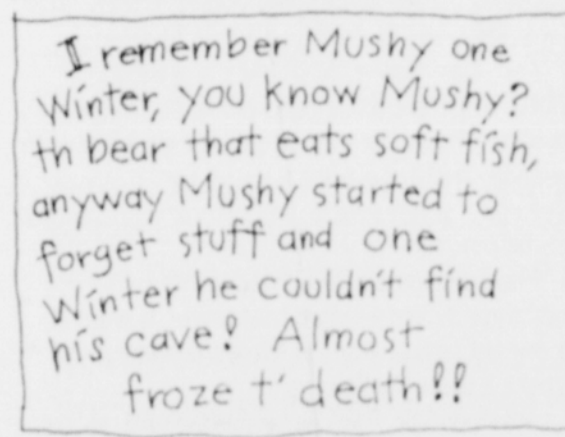 I remember Mushy one
Winter, you know Mushy?
th bear that eats soft fish,
anyway Mushy started to
forget stuff and one
Winter he couldn't find
his cave! Almost
froze t' death!!